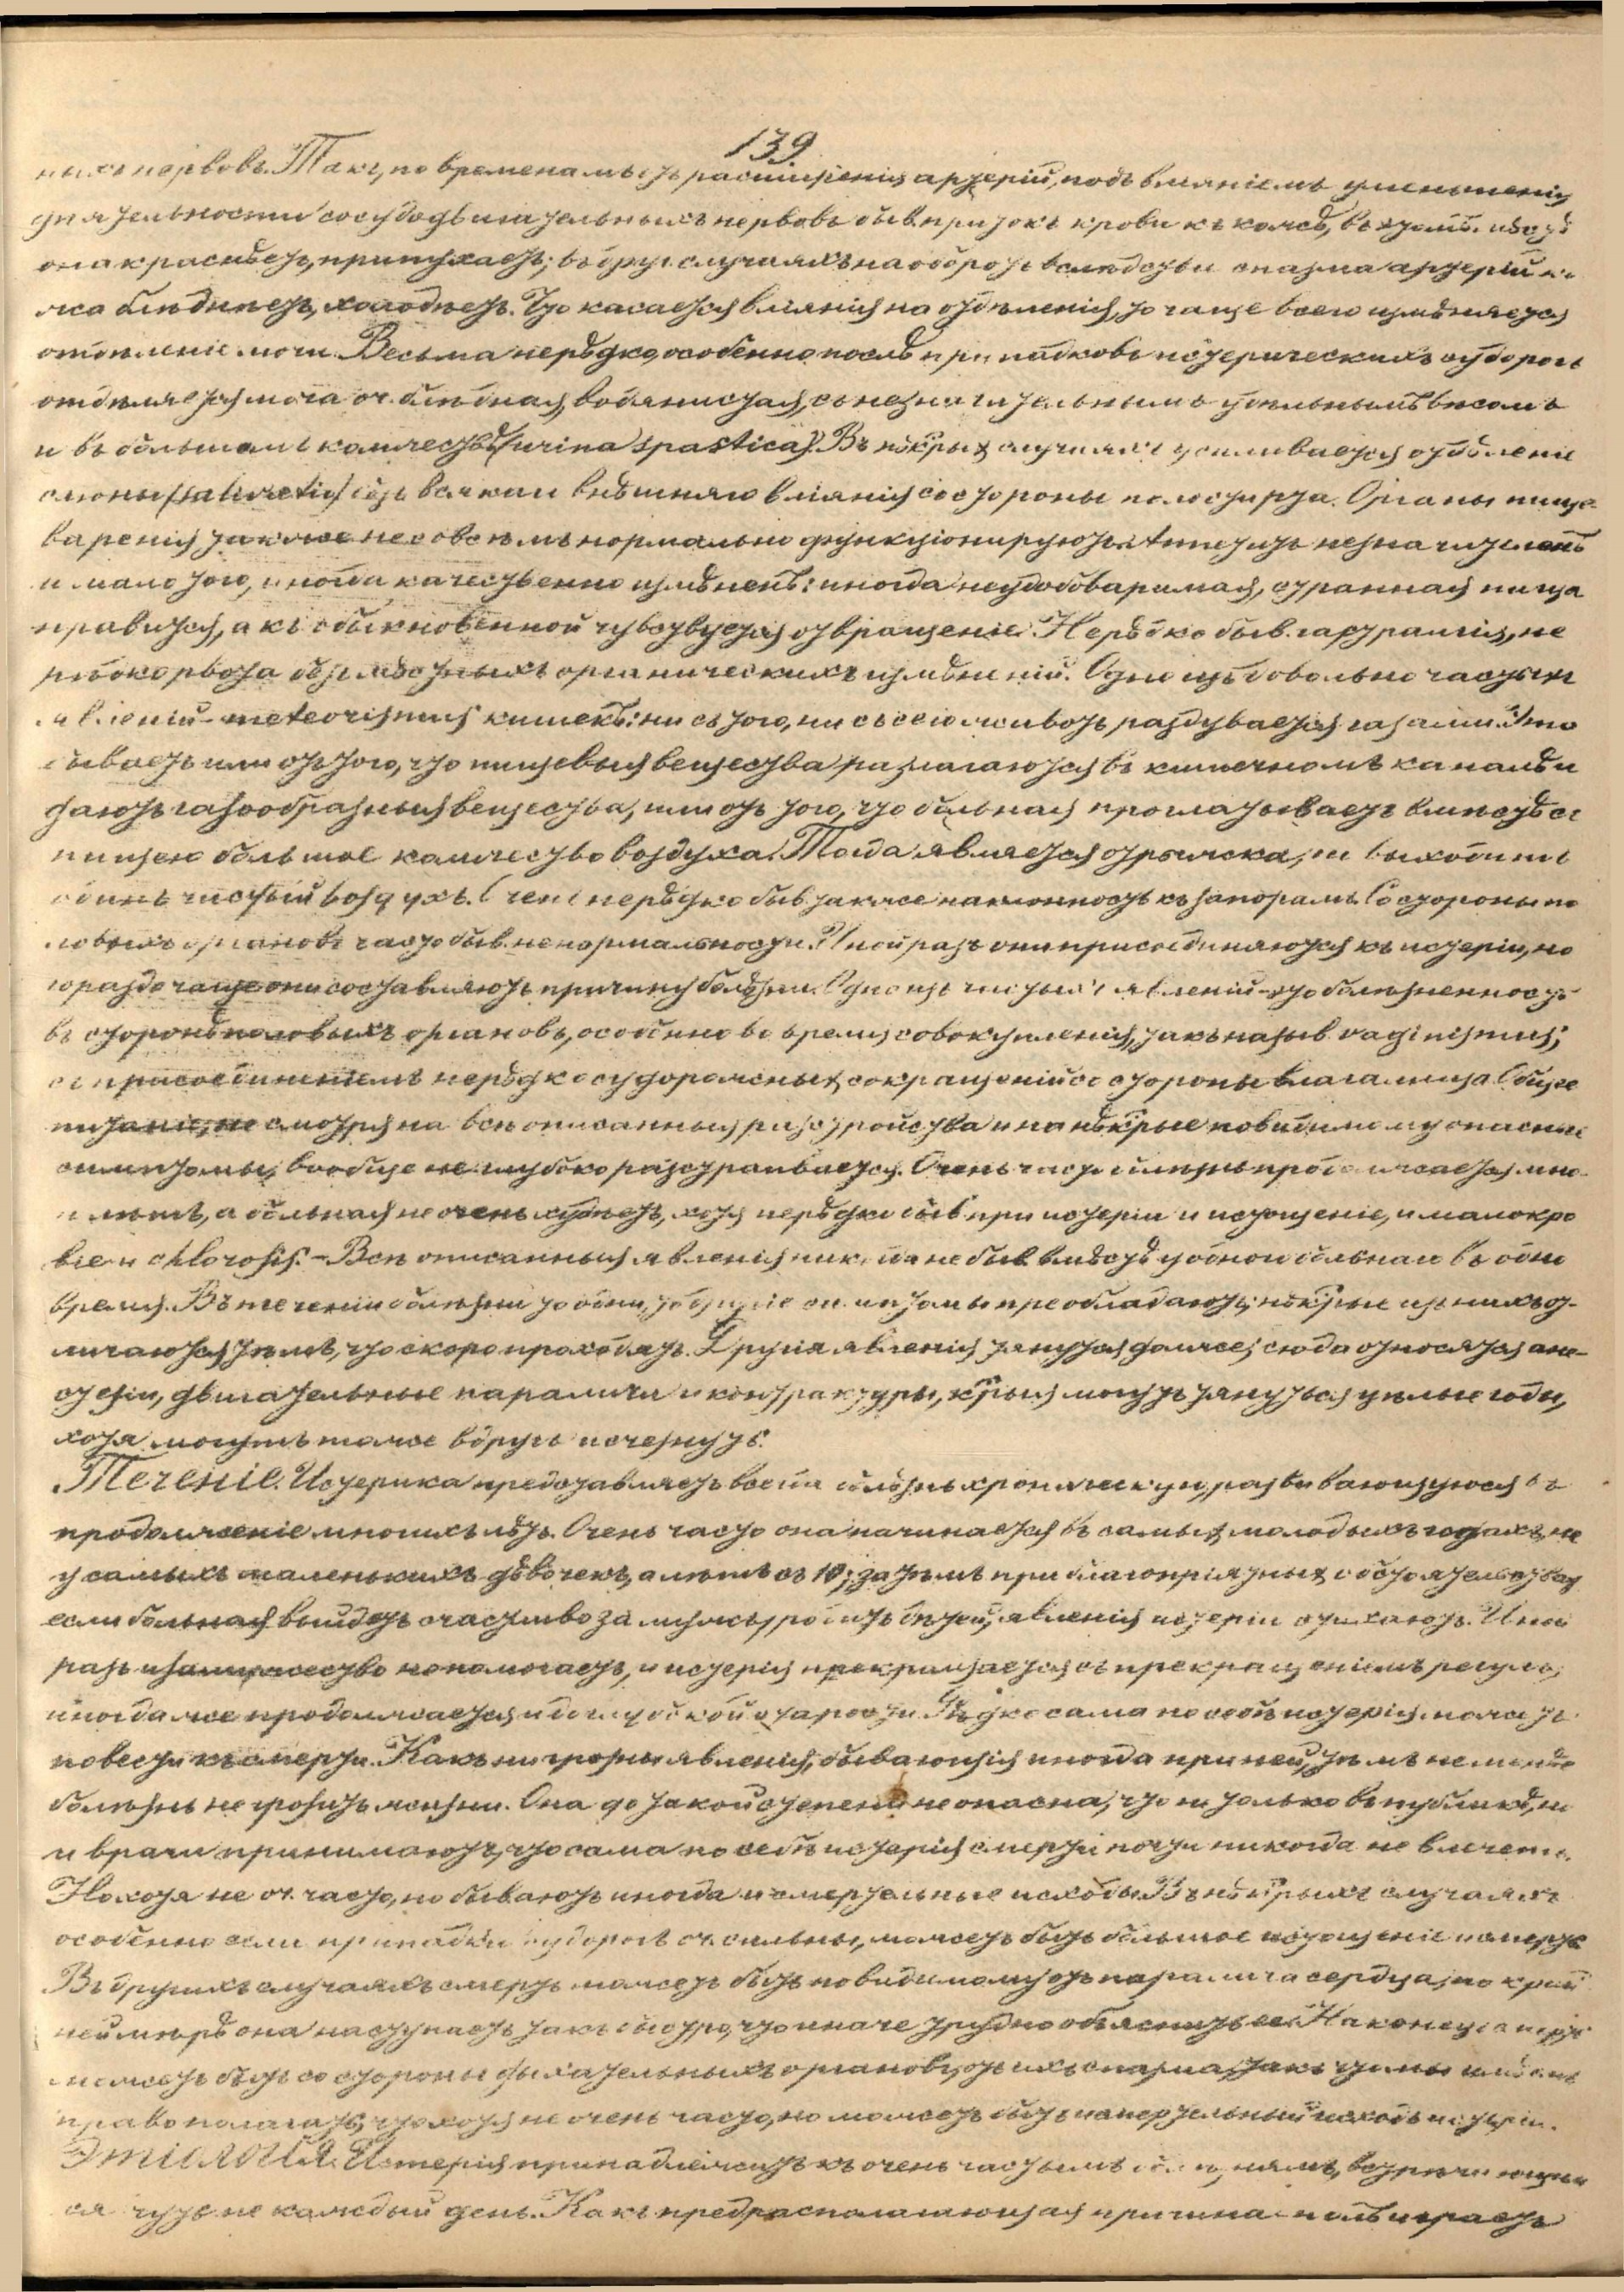 139
ныхъ нервовъ. Такъ, по временамъ отъ расширенія артерій, подъ вліяніемъ уменьшенія
дѣятельности сосудодвигательныхъ нервовъ быв. притокъ крови къ кожѣ, въ этомъ
она краснѣетъ, припухаетъ; въ друг. случаяхъ наоборотъ вслѣдствіи спазма артерій ко-
жа блѣднѣетъ, холоднѣетъ. Что касается вліянія на отдѣленія, то чаще всего измѣняется
отдѣленіе мочи. Весьма нерѣдко, особенно послѣ припадковъ истерическихъ судорогъ
отдѣляется моча оч. блѣдная, водянистая, съ незначительнымъ удѣльнымъ вѣсомъ
и въ большомъ количествѣ (urina spastica). Въ нѣкрыхъ случаяхъ усиливается отдѣленіе
слюны (salivatio) безъ всякаго внѣшняго вліянія со стороны полости рта. Органы пище-
варенія также не совсѣмъ нормально функціонируютъ. Аппетитъ незначителенъ
и мало того, иногда качественно измѣненъ: иногда неудобоваримая, странная пища
нравится, а къ обыкновенной чувствуется отвращеніе. Нерѣдко быв. гастралгія, не
рѣдко рвота безъ мѣстныхъ органическихъ измѣненій. Одно изъ довольно частыхъ
явленій - meteorismus кишекъ: ни съ того, ни съ сего животъ раздувается газами. Это
бываетъ или отъ того, что пищевыя вещества разлагаются въ кишечномъ каналѣ и
даютъ газообразныя вещества, или отъ того, что больная проглатываетъ вмѣстѣ съ
пищею большое количество воздуха. Тогда является отрыжка, и выходитъ
одинъ чистый воздухъ. Очень нерѣдко быв. также наклонность къ запорамъ. Со стороны по-
ловыхъ органовъ часто быв. ненормальности. Иной разъ они присоединяются къ истеріи, но
гораздо чаще они составляютъ причину болѣзни. Одно изъ частыхъ явленій - это болѣзненность
въ сторонѣ половыхъ органовъ, особенно во время совокупленія, такъ назыв. vaginismus,
съ присоединеніемъ нерѣдко судорожныхъ сокращеній со стороны влагалища. Общее
питаніе, не смотря на всѣ описанныя разстройства и на нѣкрые повидимому опасные
симптомы, вообще не глубоко разстраивается. Очень часто болѣзнь продолжается мно-
го лѣтъ, а больная не очень худѣетъ, хотя нерѣдко быв. при истеріи и истощеніе, и малокро-
віе и chlorosis. - Всѣ описанныя явленія никогда не быв. вмѣстѣ у одной больной въ одно
время. Въ теченіи болѣзни то одни, то другіе симптомы преобладаютъ; нѣкрые изъ нихъ от-
личаются тѣмъ, что скоро проходятъ. Другія явленія тянутся дольше; сюда относятся ане-
стезіи, двигательные параличи и контрактуры, кʼрыя могутъ тянуться цѣлые годы,
хотя могутъ также вдругъ исчезнуть.
Теченіе. Истерика представляетъ всегда болѣзнь хроническую, развивающуюся въ
продолженіе многихъ лѣтъ. Очень часто она начинается въ самыхъ молодыхъ годахъ, не
у самыхъ маленькихъ дѣвочекъ, а лѣтъ съ 10; затѣмъ при благопріятныхъ обстоятельствахъ
если больная выйдетъ счастливо за мужъ, родитъ дѣтей, явленія истеріи стихаютъ. Иной
разъ и замужество не помогаетъ, и истерія прекращается съ прекращеніемъ регулъ,
иногда же продолжается и до глубокой старости. Рѣдко сама по себѣ истерія можетъ
повести къ смерти. Какъ ни грозны явленія, бывающія иногда при ней, тѣмъ не менѣе
болѣзнь не грозитъ жизни. Она до такой степени не опасна, что не только въ публикѣ, но
и врачи принимаютъ, что сама по себѣ истерія смерти почти никогда не влечетъ.
Но хотя не оч. часто, но бываютъ иногда и смертельные исходы. Въ нѣкрыхъ случаяхъ
особенно если припадки судорогъ оч. сильны, можетъ быть большое истощеніе и смерть
Въ другихъ случаяхъ смерть можетъ быть повидимому отъ паралича сердца, по край
ней мѣрѣ она наступаетъ такъ быстро, что иначе трудно объяснить ее. Наконецъ смерть
можетъ быть со стороны дыхательныхъ органовъ, отъ ихъ спазма, такъ что мы имѣемъ
право полагать, что хотя не очень часто, но можетъ быть смертельный исходъ истеріи.
Этіологія. Истерія принадлежитъ къ очень частымъ болѣзнямъ, встрѣчающим-
ся чуть не каждый день. Какъ предрасполагающая причина - полъ играетъ